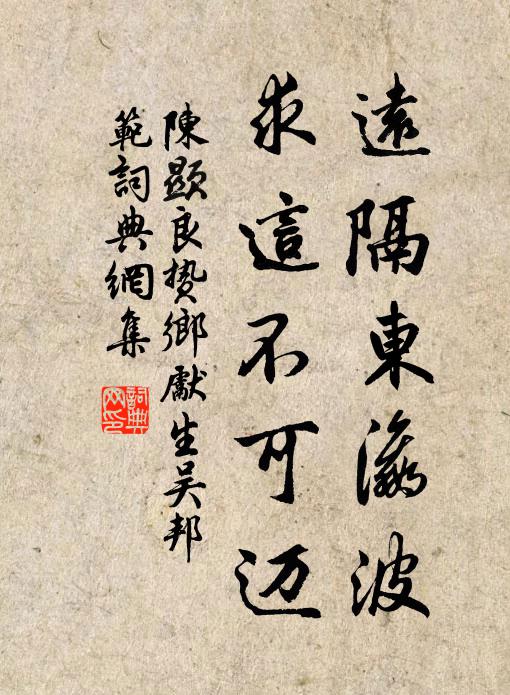 遠隔東瀛波
求這不可迈
陳顯良贄鄉獻生吳邦
範詞典網集
詞典網印